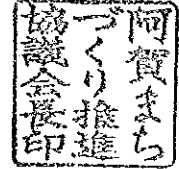 阿賀まち
づくり推進
協議会長印